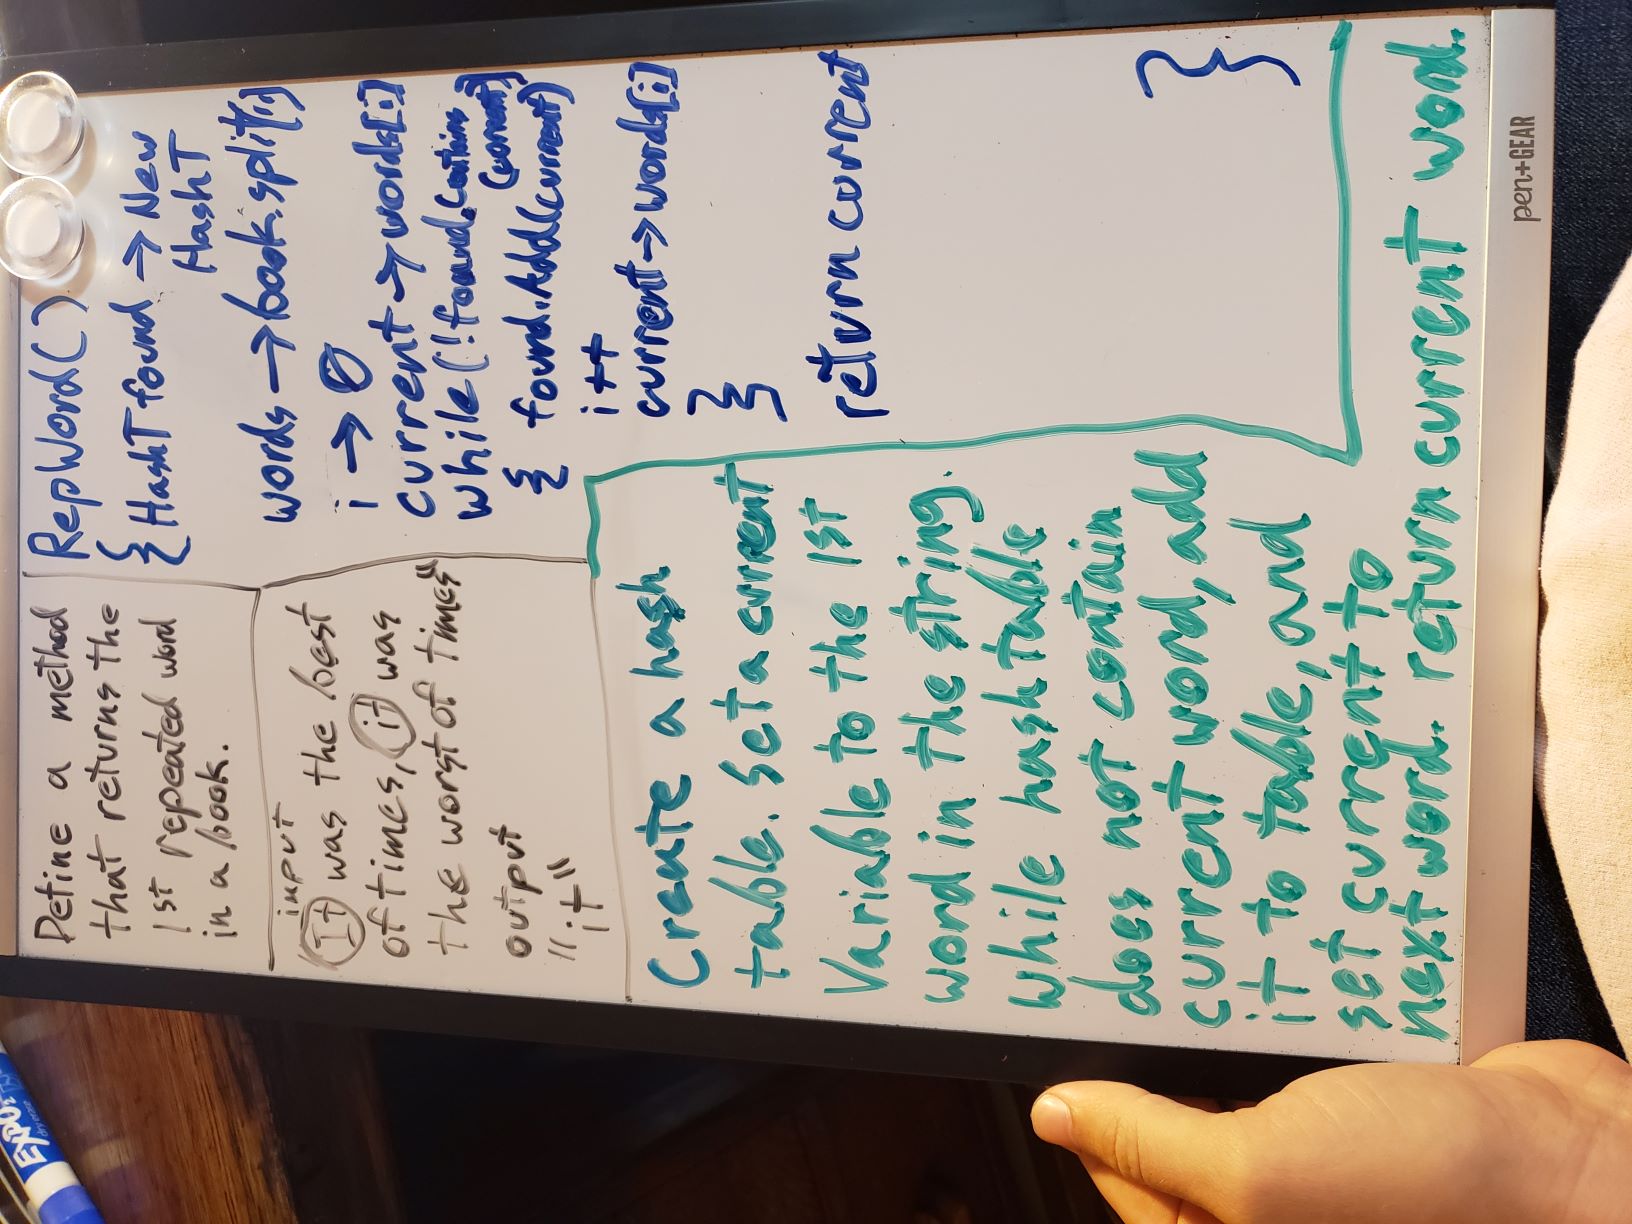 EXPO
dry erase
Define a method
that returns the
1st repeated word
in a book.
input
"It was the best
of times, it was
the worst of times"
output
"it"
Create a hash
table. Set a current
Variable to the 1st
word in the string.
while hash table
does not contain
current word, add
it to table, and
set current to
next word. return current word.
RepWord()
{ HashT found → New
HashT
words → book.split(
i → 0
current → words[i]
while (!found.Contains
(current))
{ found.Add(current)
i++
current → words[i]
}
return current
}
pen+GEAR